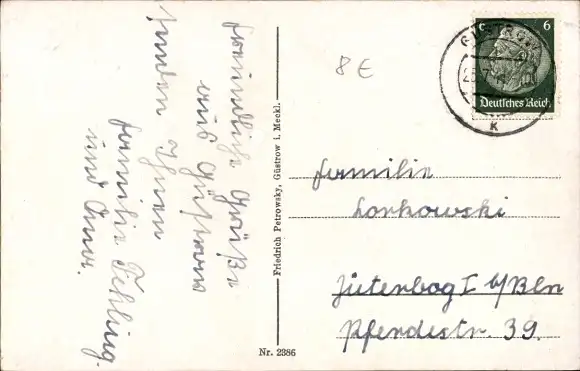 freundliche Grüße
aus Güstrow
senden Ihnen
familie Fehling
und
8 E
Friedrich Petrowsky, Güstrow i. Meckl.
Nr. 2386
GÜSTROW
K
6
Deutsches Reich
familie
Lorkowski
Jüterbog I b/Bln
Pferdestr. 39.